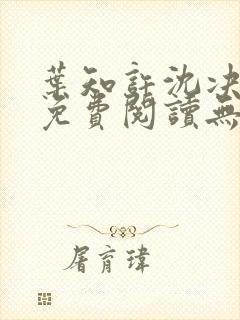 葉知許沈决
免費閱讀無
屠育瑋